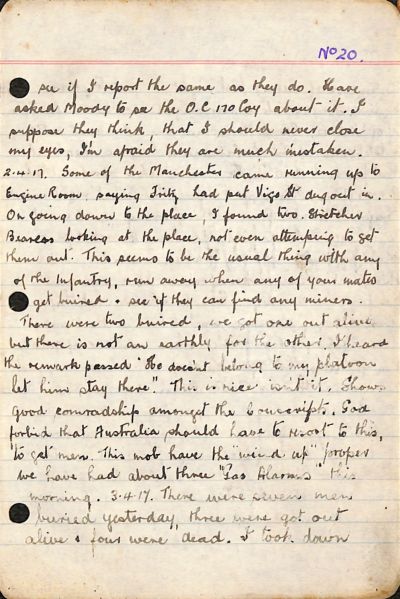 No 20.
see if I report the same as they do. Have
asked Moody to see the O.C 170 Coy about it. I
suppose they think, that I should never close
my eyes, I'm afraid they are much mistaken.
2.4.17. Some of the Manchesters came running up to
Engine Room, saying Fritz had put Vigo St dugout in.
On going down to the place, I found two Stretcher
Bearers looking at the place, not even attempting to get
them out. This seems to be the usual thing with any
of the Infantry, run away when any of your mates
get buried & see if they can find any miners.
There were two buried, we got one out alive
but there is not an earthly for the other, I heard
the remark passed "He doesn't belong to my platoon
let him stay there". This is nice isn't it. Shows
good comradship amongst the Conscripts. God
forbid that Australia should have to resort to this,
to get men. This mob have the "wind up" proper
we have had about three "Gas Alarms" this
morning. 3.4.17. There were seven men
buried yesterday, three were got out
alive & four were dead. I took down